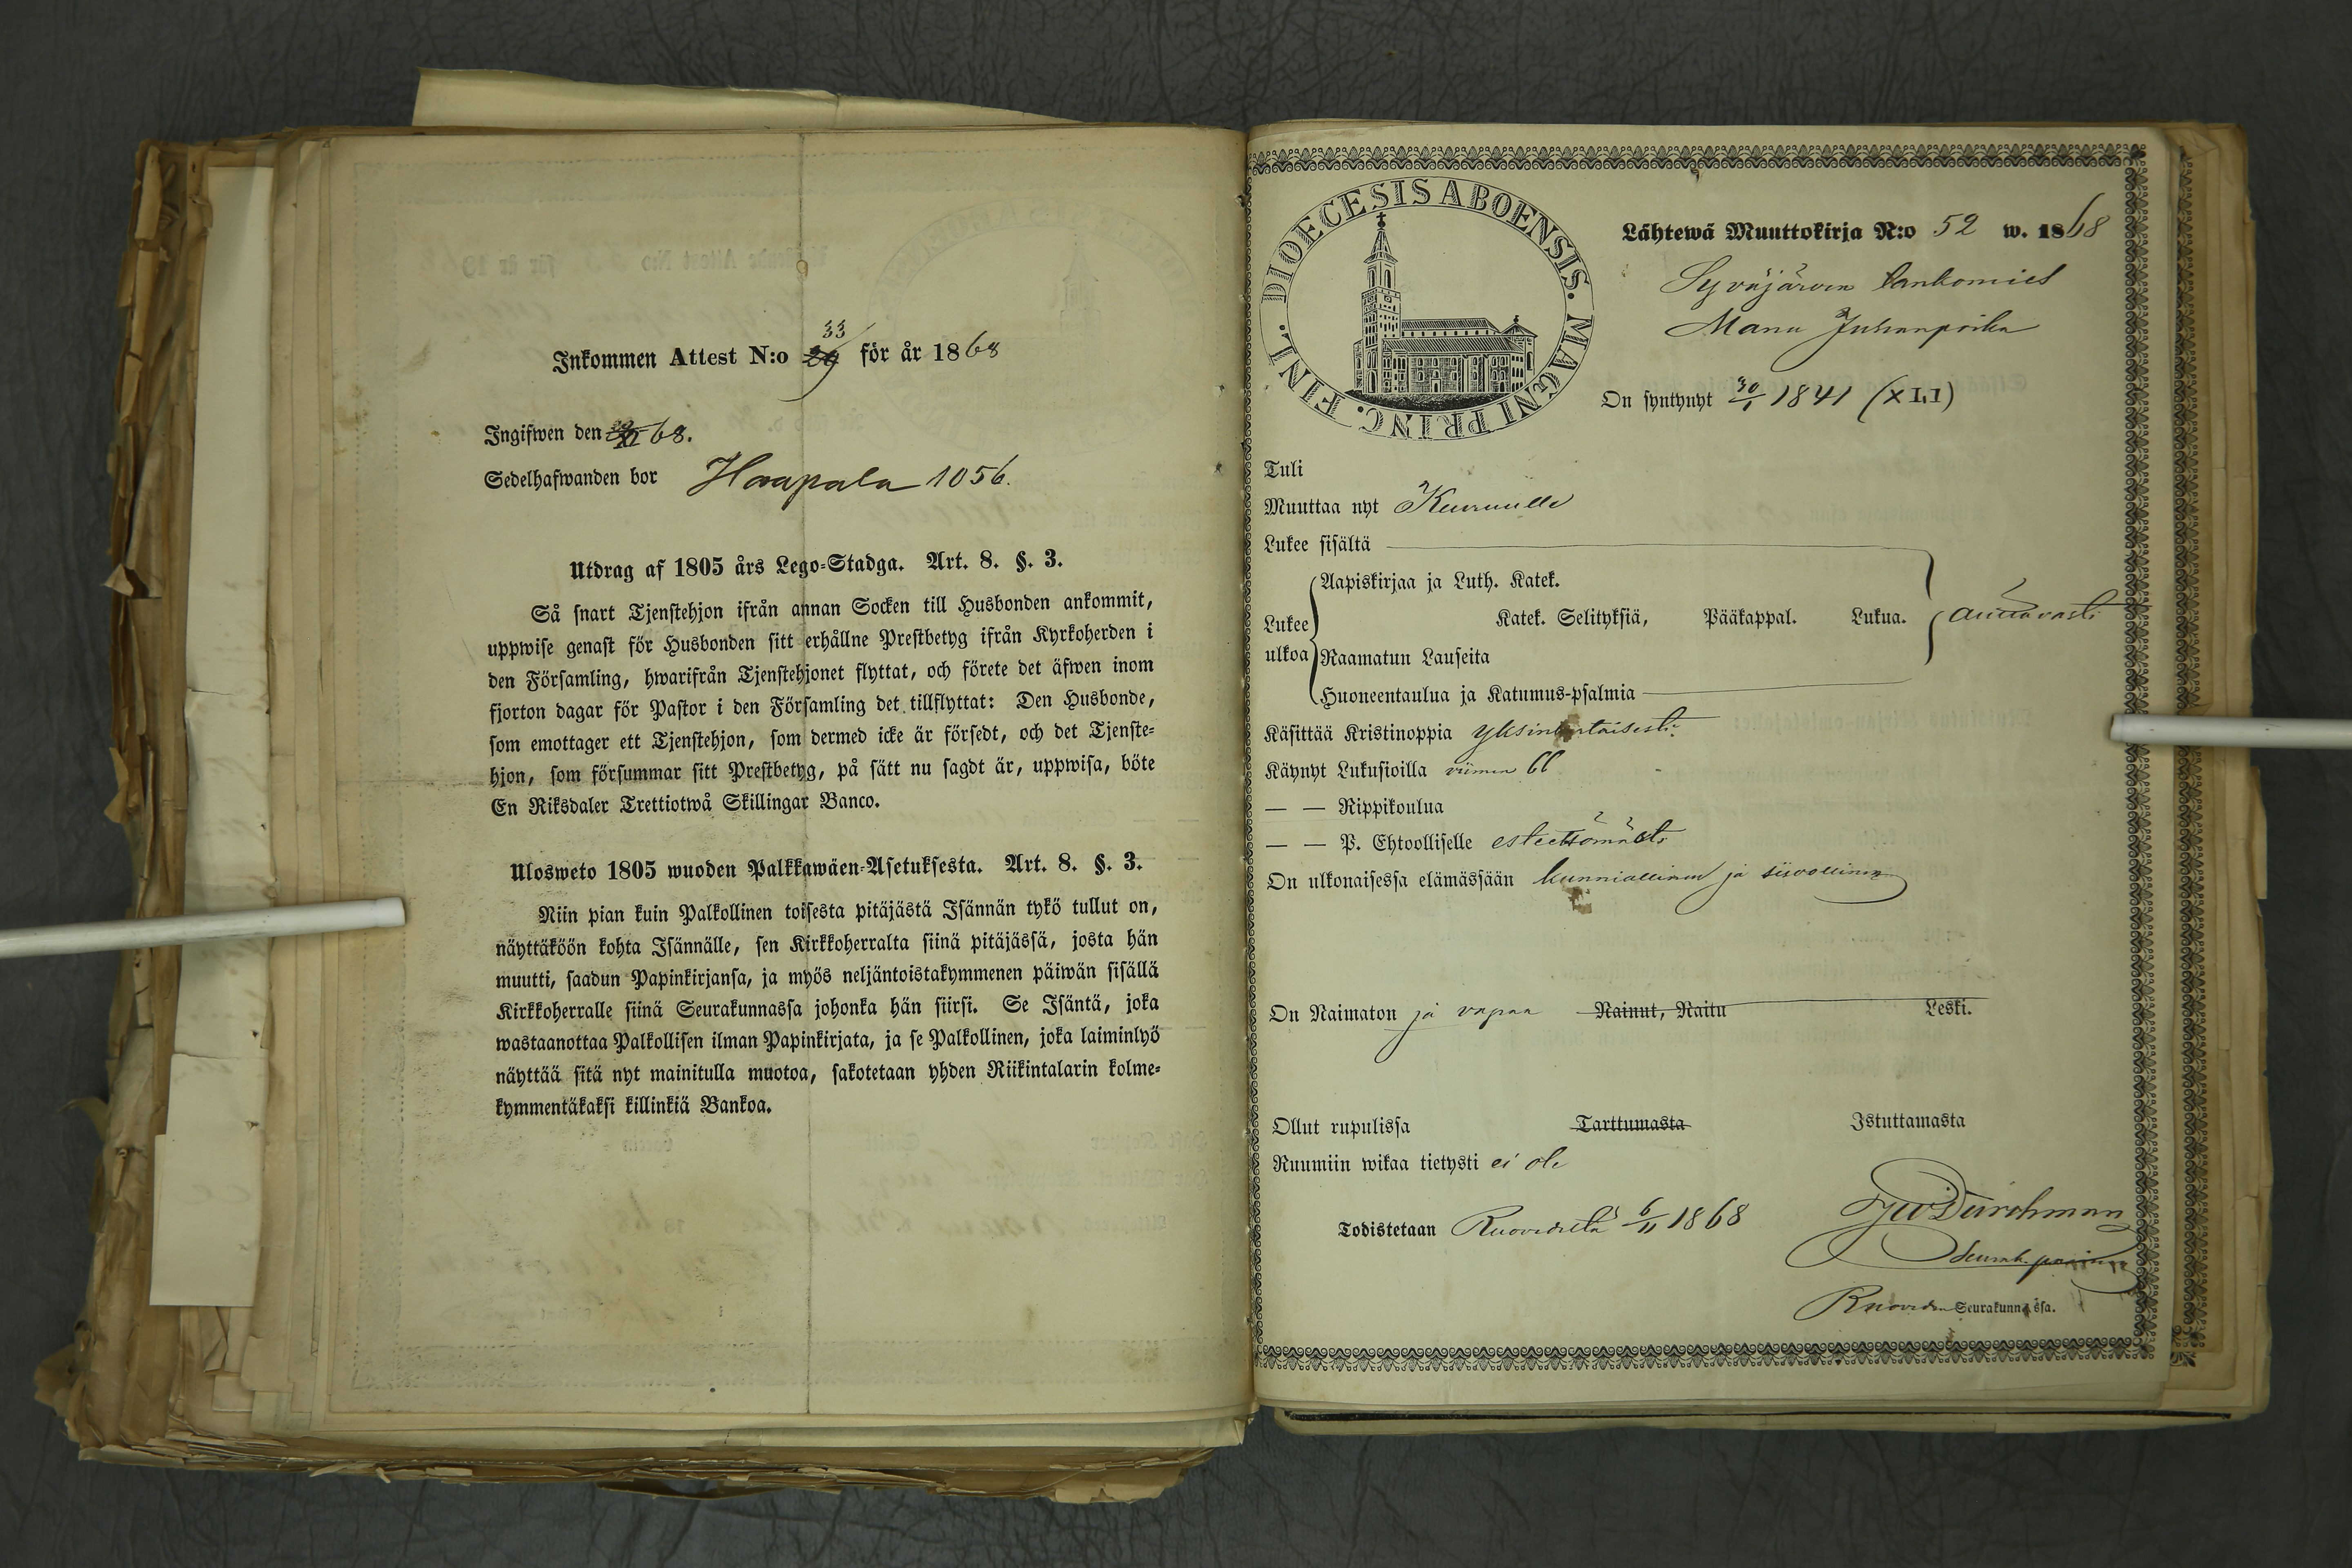 Inkommen Attest N:o 29 33 för år 1868
Ingifwen den 68.
Sedelhafwanden bor Haapala 1056.
Utdrag af 1805 års Lego-Stadga. Art. 8. §. 3.
Så snart Tjenstehjon ifrån annan Socken till Husbonden ankommit,
uppwise genast för Husbonden sitt erhållne Prestbetyg ifrån Kyrkoherden i
den Församling, hwarifrån Tjenstehjonet flyttat, och förete det äfwen inom
fjorton dagar för Pastor i den Församling det tillflyttat: Den Husbonde,
som emottager ett Tjenstehjon, som dermed icke är försedt, och det Tjenste-
hjon, som försummar sitt Prestbetyg, på sätt nu sagdt är, uppwisa, böte
En Riksdaler Trettiotwå Skillingar Banco.
Ulosweto 1805 wuoden Palkkawäen-Asetuksesta. Art. 8. §. 3.
Niin pian kuin Palkollinen toisesta pitäjästä Isännän tykö tullut on,
näyttäköön kohta Isännälle, sen Kirkkoherralta siinä pitäjässä, josta hän
muutti, saadun Papinkirjansa, ja myös neljäntoistakymmenen päiwän sisällä
Kirkkoherralle siinä Seurakunnassa johonka hän siirsi. Se Isäntä, joka
wastaanottaa Palkollisen ilman Papinkirjata, ja se Palkollinen, joka laiminlyö
näyttää sitä nyt mainitulla muotoa, sakotetaan yhden Riikintalarin kolme-
kymmentäkaksi killinkiä Bankoa.
DIOECESIS ABOENSIS. MAGNI PRINC. FINL.
Lähtewä Muuttokirja N:o 52 w. 1868
Syväjärven lankomies
Manu Juhanpoika
On syntynyt 30/1 1841 (XLI)
Tuli
Muuttaa nyt Keuruulle
Lukee sisältä
Aapiskirjaa ja Luth. Katek.
Lukee ulkoa Katek. Selityksiä, Pääkappal. Lukua. auttavasti
Raamatun Lauseita
Huoneentaulua ja Katumus-psalmia
Käsittää Kristinoppia yksinkertaisesti
Käynyt Lukusioilla viimen 66
— — Rippikoulua
— — P. Ehtoolliselle esteettömästi
On ulkonaisessa elämässään kunniallinen ja siivollinen
On Naimaton ja vapaa Nainut, Naitu Leski.
Ollut rupulissa Tarttumasta Istuttamasta
Ruumiin wikaa tietysti ei ole
Todistetaan Ruovedellä 6/11 1868
Durchman
Ruoveden Seurakunnassa.